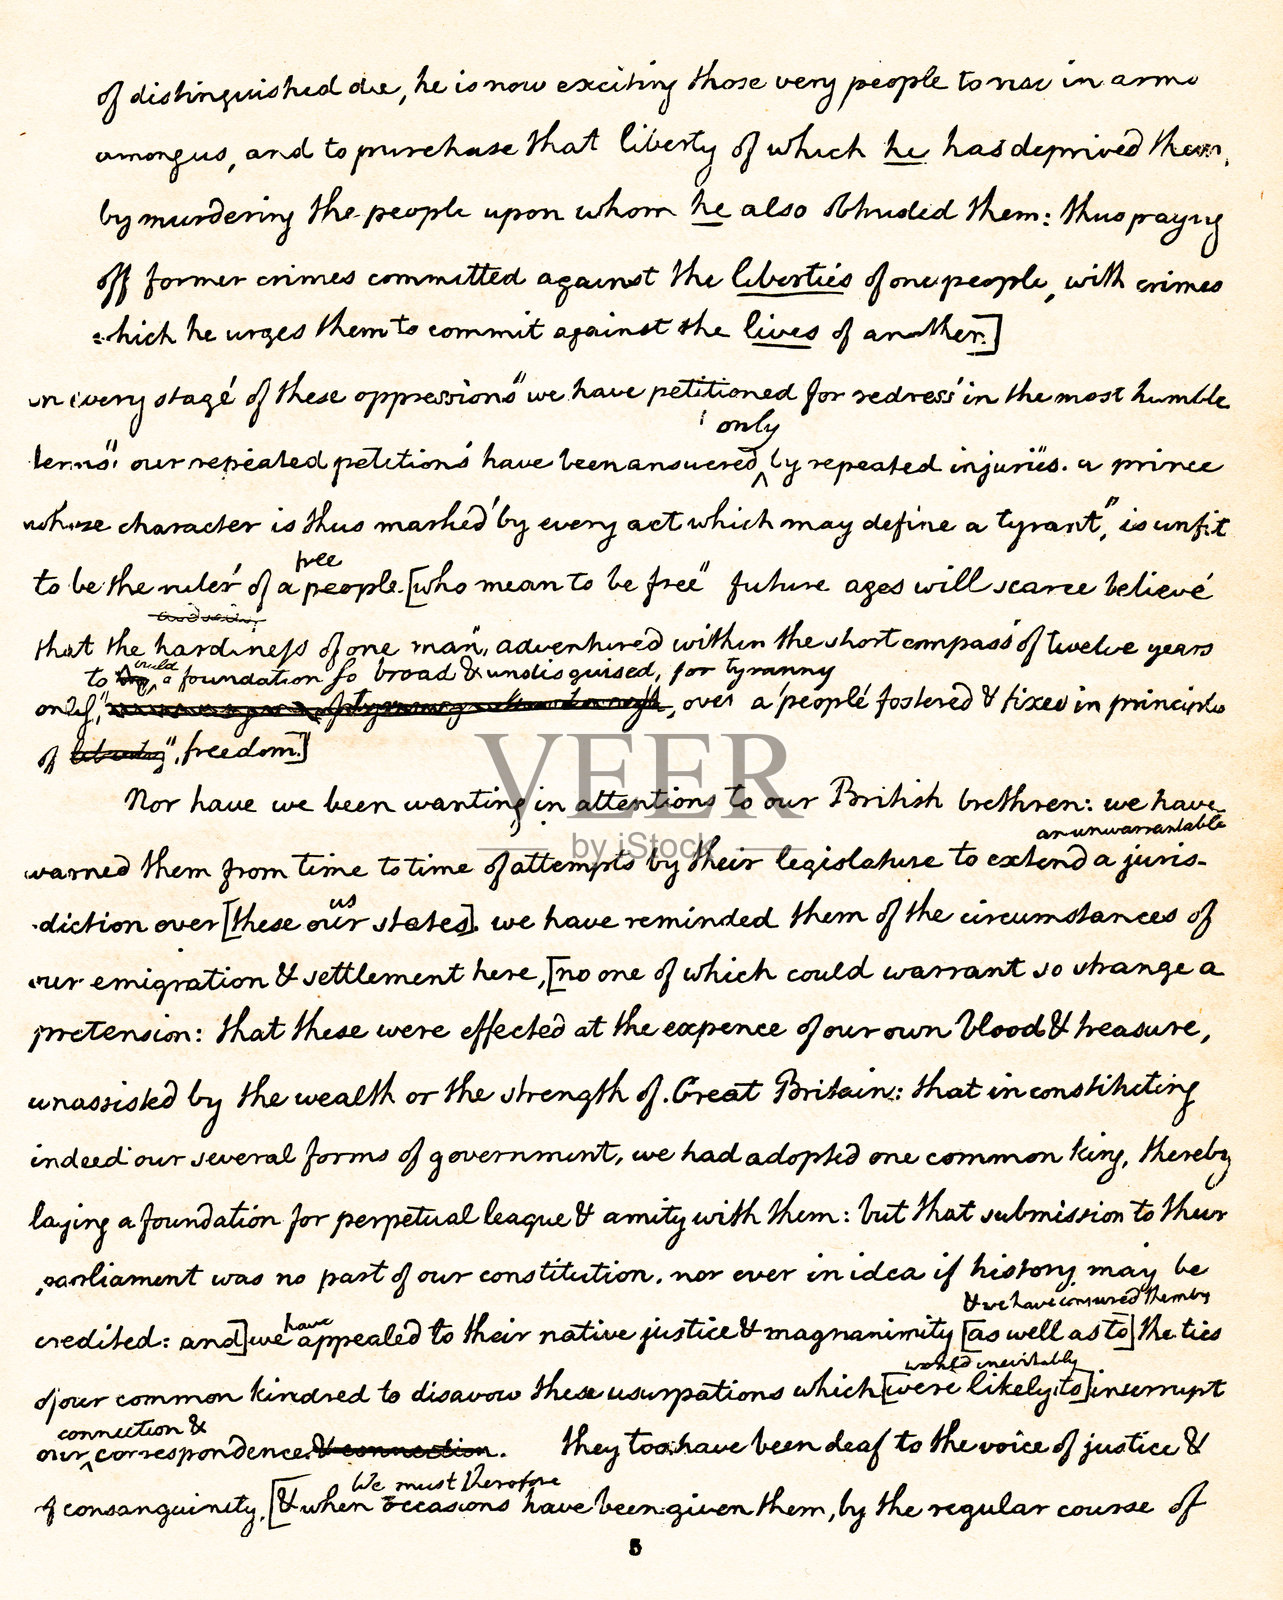 of distinguished die, he is now exciting those very people to rise in arms
among us, and to purchase that liberty of which he has deprived them,
by murdering the people upon whom he also obtruded them: thus paying
off former crimes committed against the liberties of one people, with crimes
which he urges them to commit against the lives of another.]
in every stage of these oppressions" we have petitioned for redress in the most humble
only
terms" our repeated petitions have been answered ^ by repeated injuries. a prince
whose character is thus marked by every act which may define a tyrant," is unfit
free
to be the ruler of a people. [who mean to be free" future ages will scarce believe
that the hardiness of one man, adventured within the short compass of twelve years
build
to ^ a foundation so broad & undisguised, for tyranny
only, over a people fostered & fixed in principles
of liberty", freedom.]
Nor have we been wanting in attentions to our British brethren: we have
an unwarrantable
warned them from time to time of attempts by their legislature to extend a juris-
us
-diction over [these our states]. we have reminded them of the circumstances of
our emigration & settlement here, [no one of which could warrant so strange a
pretension: that these were effected at the expence of our own blood & treasure,
unassisted by the wealth or the strength of Great Britain: that in constituting
indeed our several forms of government, we had adopted one common king, thereby
laying a foundation for perpetual league & amity with them: but that submission to their
parliament was no part of our constitution. nor ever in idea if history may be
& we have conjured them by
have
credited: and] we appealed to their native justice & magnanimity [as well as to] the ties
would inevitably
of our common kindred to disavow these usurpations which [were likely to] interrupt
connection &
our ^ correspondence & connection. they too have been deaf to the voice of justice &
We must therefore
of consanguinity, [& when occasions have been given them, by the regular course of
5
VEER
by iStock